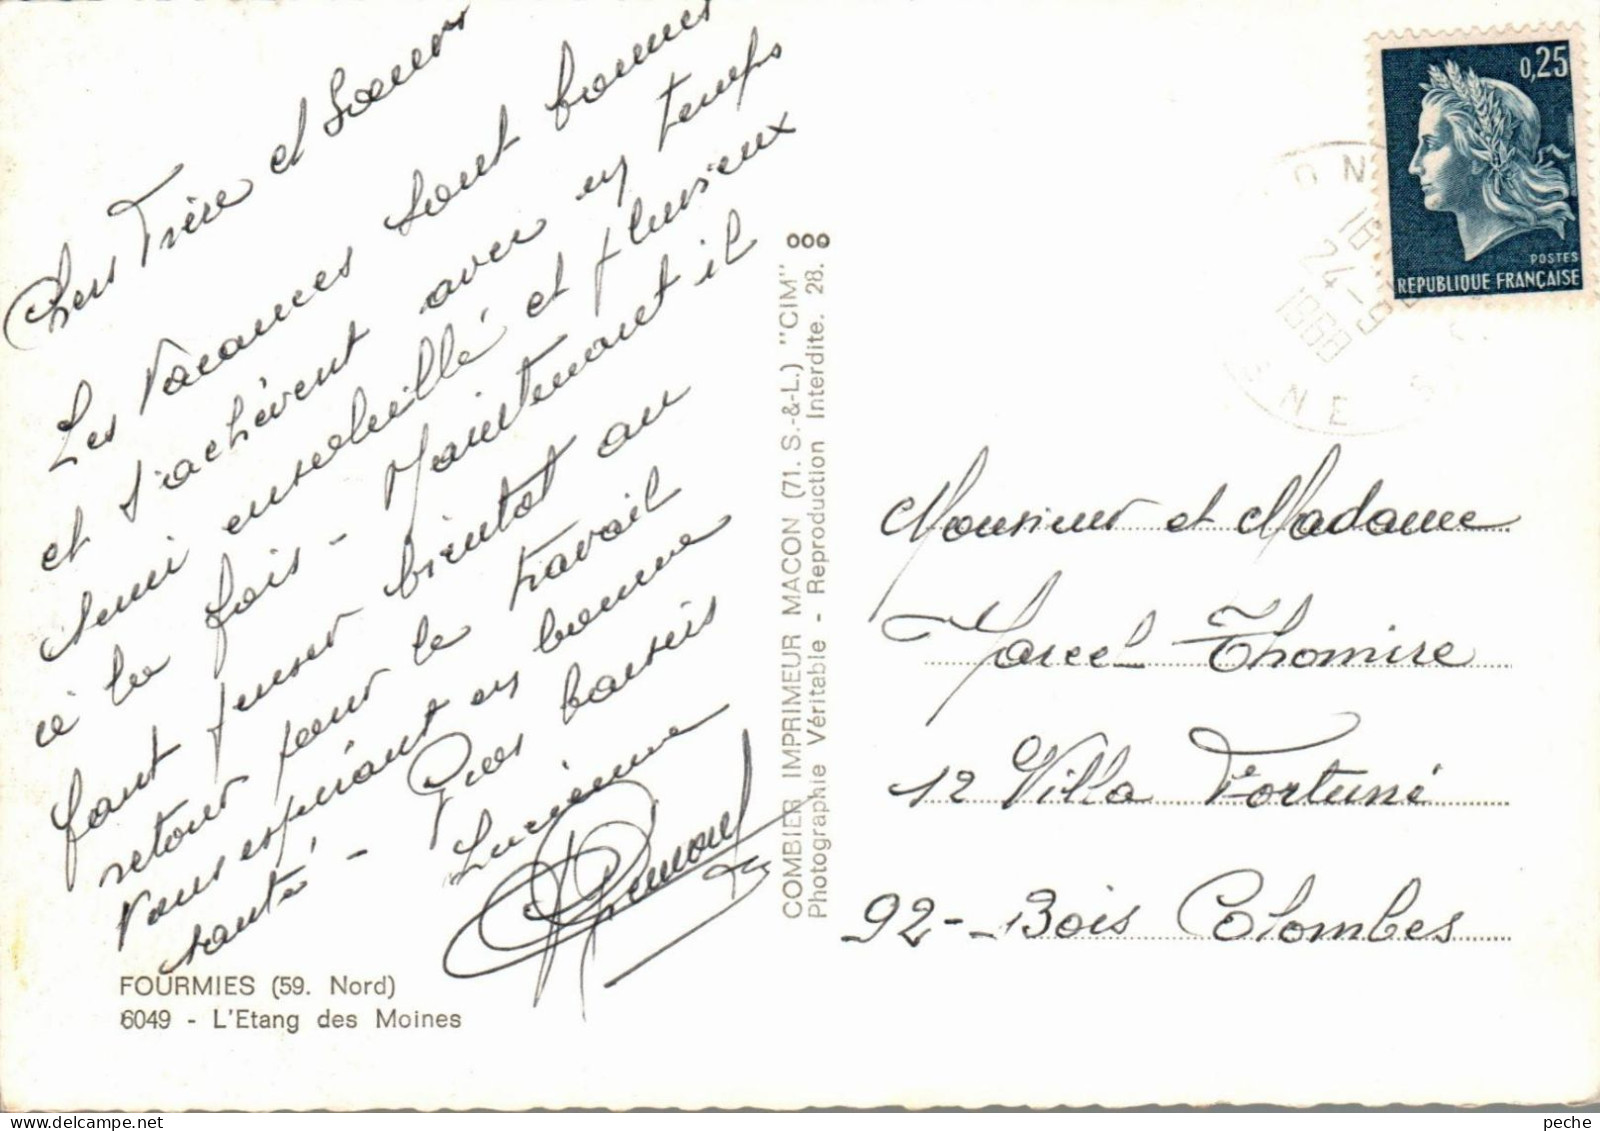 Chers Frère et Soeur
Les Vacances sont bonnes
et s'achèvent avec un temps
demi ensoleillé et pluvieux
à la fois - Maintenant il
faut penser bientot au
retour pour le travail
Vous espérant en bonne
santé - Gros baisers
Lucienne
FOURMIES (59. Nord)
6049 - L'Etang des Moines
COMBIER IMPRIMEUR MACON (71. S.-&-L.) "CIM"
Photographie Véritable - Reproduction Interdite. 28.
0,25
POSTES
REPUBLIQUE FRANÇAISE
16
24-9
1968
Monsieur et Madame
Marcel Thomire
12 Villa Fortuné
92-Bois Colombes
peche